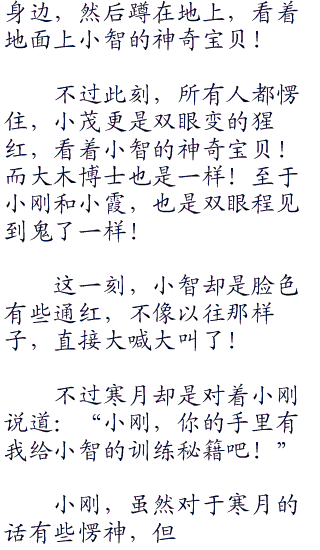 身边，然后蹲在地上，看着
地面上小智的神奇宝贝！
不过此刻，所有人都愣
住，小茂更是双眼变的猩
红，看着小智的神奇宝贝！
而大木博士也是一样！至于
小刚和小霞，也是双眼程见
到鬼了一样！
这一刻，小智却是脸色
有些通红，不像以往那样
子，直接大喊大叫了！
不过寒月却是对着小刚
说道：“小刚，你的手里有
我给小智的训练秘籍吧！”
小刚，虽然对于寒月的
话有些愣神，但